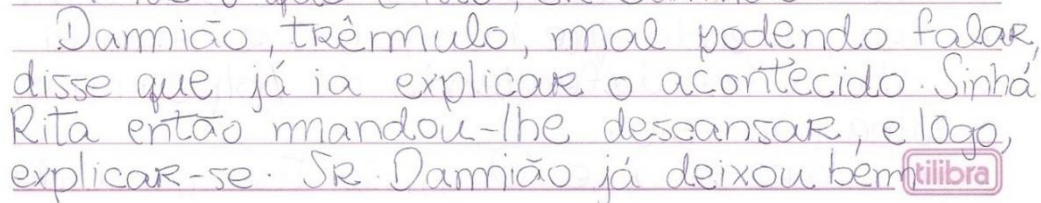 Damião, trêmulo, mal podendo falar,
disse que já ia explicar o acontecido. Sinhá
Rita então mandou-lhe descansar, e logo,
explicar-se. Sr. Damião já deixou bem
tilibra